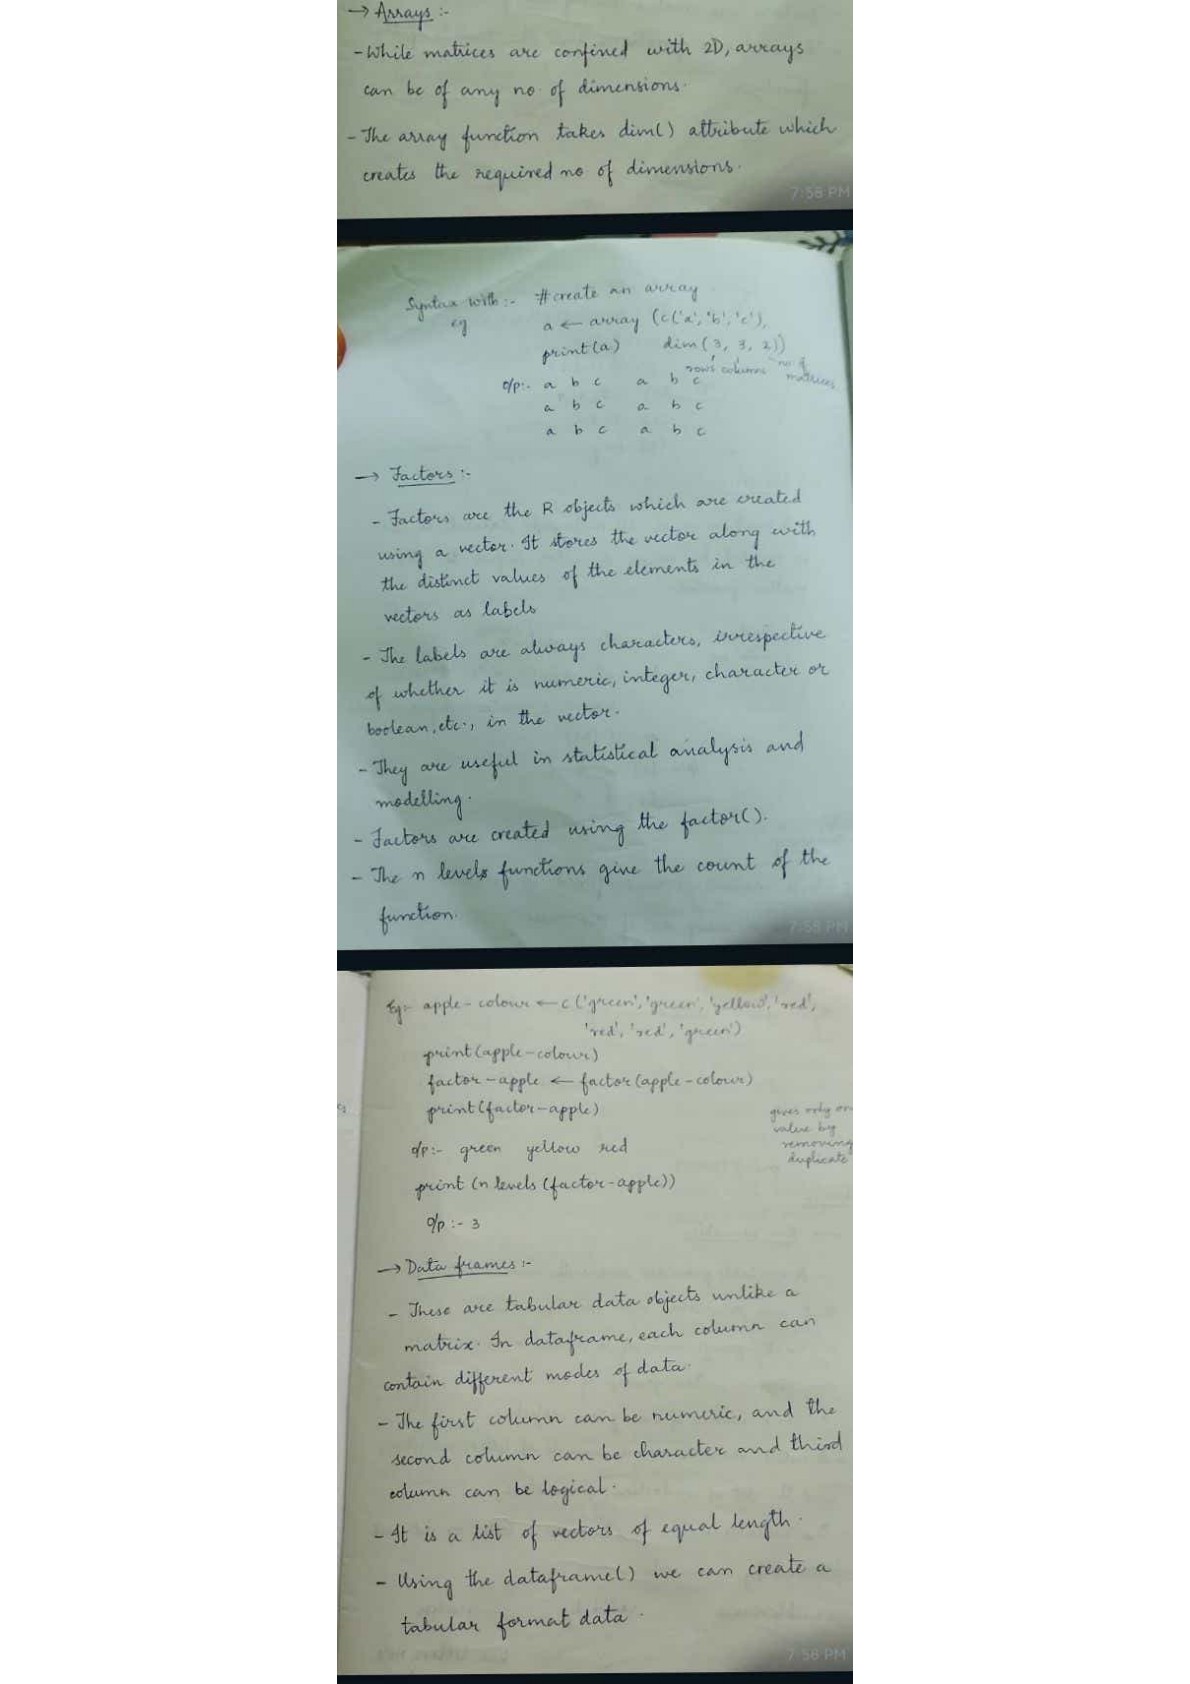 → Arrays :-
- While matrices are confined with 2D, arrays
can be of any no. of dimensions.
- The array function takes dim() attribute which
creates the required no of dimensions.
7:56 PM
Syntax with :- # create an array
eg a ← array (c('a', 'b', 'c'),
print(a) dim(3, 3, 2))
rows columns no of
matrices
o/p:- a b c a b c
a b c a b c
a b c a b c
→ Factors :-
- Factors are the R objects which are created
using a vector. It stores the vector along with
the distinct values of the elements in the
vectors as labels
- The labels are always characters, irrespective
of whether it is numeric, integer, character or
boolean, etc., in the vector.
- They are useful in statistical analysis and
modelling.
- Factors are created using the factor().
- The n levels functions give the count of the
function.
7:55 PM
Eg:- apple-colour ← c('green', 'green', 'yellow', 'red',
'red', 'red', 'green')
print(apple-colour)
factor-apple ← factor(apple-colour)
print(factor-apple)
gives only on
value by
removing
duplicate
o/p:- green yellow red
print (n levels (factor-apple))
o/p :- 3
→ Data frames :-
- These are tabular data objects unlike a
matrix. In dataframe, each column can
contain different modes of data.
- The first column can be numeric, and the
second column can be character and third
column can be logical.
- It is a list of vectors of equal length.
- Using the dataframe() we can create a
tabular format data.
7:56 PM